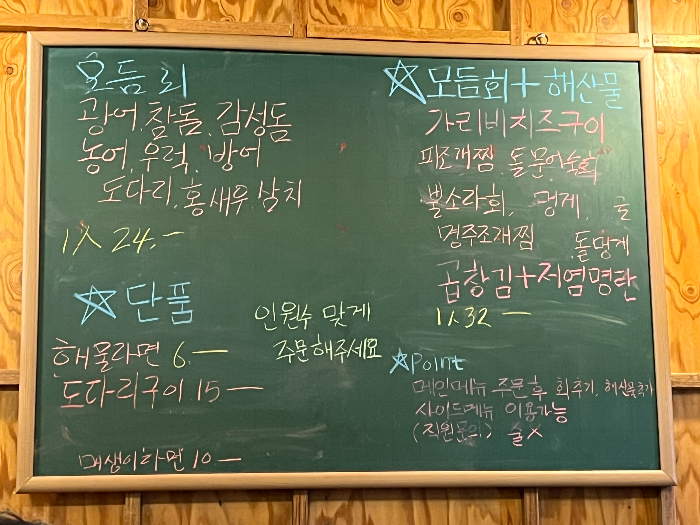 모듬회
광어, 참돔, 감성돔
농어, 우럭, 방어
도다리, 홍새우, 삼치
1人 24.-
☆단품
해물라면 6.-
도다리구이 15-
매생이라면 10-
인원수 맞게
주문해주세요
☆모듬회+해산물
가리비치즈구이
피조개찜, 돌문어숙회
뿔소라회, 멍게, 굴
명주조개찜 돌멍게
곱창김+저염명란
1人 32-
☆Point
메인메뉴 주문후 회추가, 해산물추가
사이드메뉴 이용가능
(직원문의) 술X